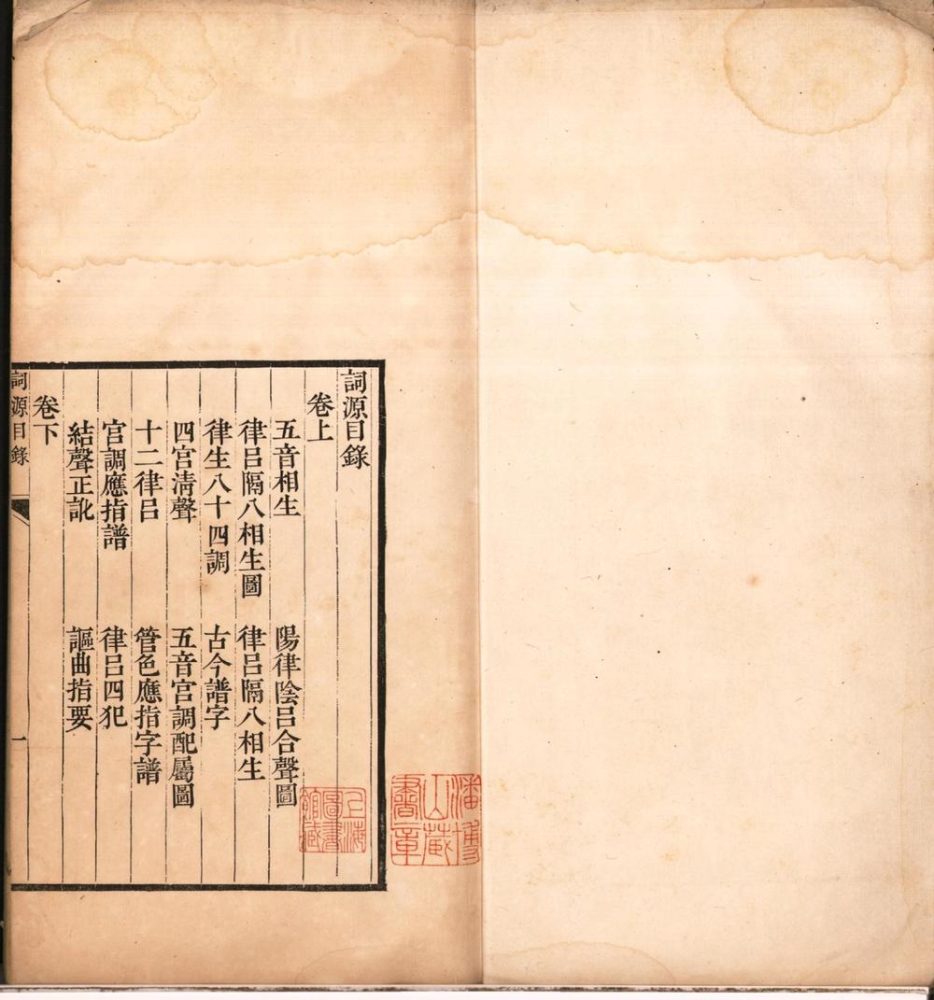 詞源目錄
卷上
五音相生 陽律陰呂合聲圖
律呂隔八相生圖 律呂隔八相生
律生八十四調 古今譜字
四宮清聲 五音宮調配屬圖
十二律呂 管色應指字譜
宮調應指譜 律呂四犯
結聲正訛 謳曲指要
卷下
詞源目錄 一
潘博山藏書章
上海圖書館藏